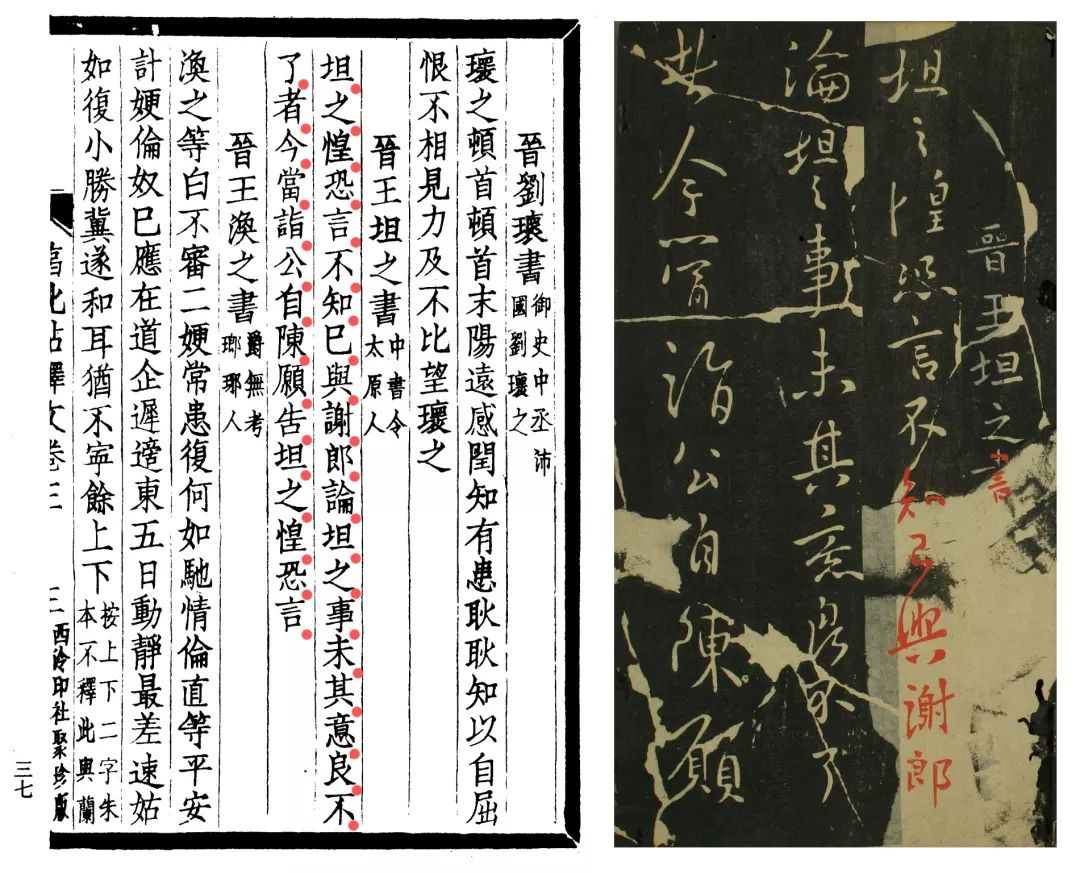 晉劉瓌書 御史中丞沛國劉瓌之
瓌之頓首頓首末陽遠感閏知有患耿耿知以自屈
恨不相見力及不比望瓌之
晉王坦之書 中書令太原人
坦之惶恐言不知巳與謝郎論坦之事未其意良不
了者今當詣公自陳願告坦之惶恐言
晉王渙之書 爵無考瑯琊人
渙之等白不審二嫂常患復何如馳情倫直等平安
計嫂倫奴巳應在道企遲適東五日動靜最差速姑
如復小勝冀遂和耳猶不寧餘上下 按上下二字朱本不釋此與蘭
帖釋文卷三 西泠印社聚珍版
三七
晉王坦之書
坦之惶恐言不知已與謝郎
論坦之事未其意良不了
者今當詣公自陳願